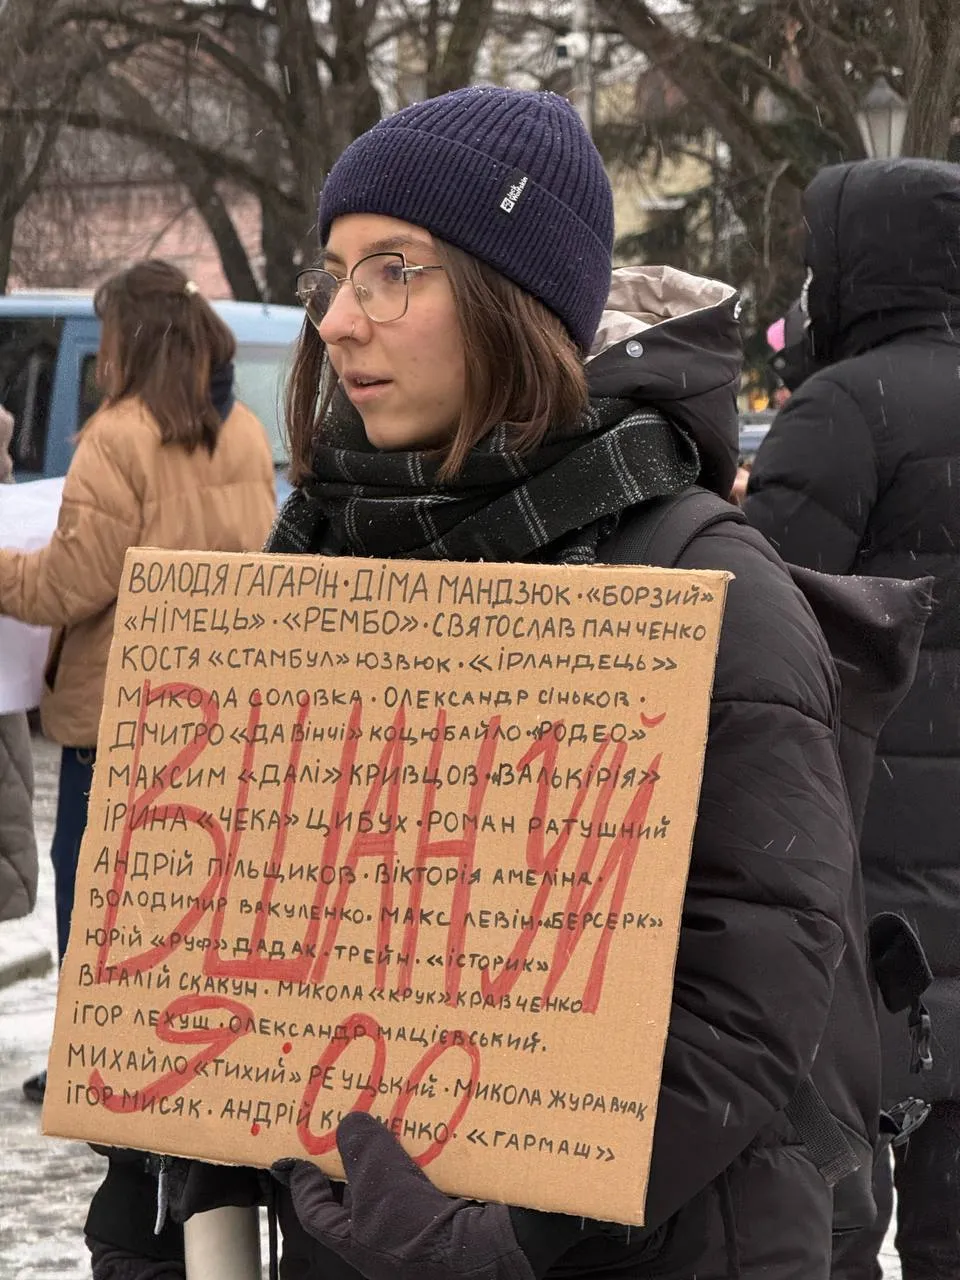 Jack Wolfskin
ВОЛОДЯ ГАГАРІН · ДІМА МАНДЗЮК · «БОРЗИЙ»
«НІМЕЦЬ» · «РЕМБО» · СВЯТОСЛАВ ПАНЧЕНКО
КОСТЯ «СТАМБУЛ» ЮЗВЮК · «ІРЛАНДЕЦЬ»
МИКОЛА СОЛОВКА · ОЛЕКСАНДР СІНЬКОВ ·
ДМИТРО «ДА ВІНЧІ» КОЦЮБАЙЛО «РОДЕО»
МАКСИМ «ДАЛІ» КРИВЦОВ · «ВАЛЬКІРІЯ»
ІРИНА «ЧЕКА» ЦИБУХ · РОМАН РАТУШНИЙ
АНДРІЙ ПІЛЬЩИКОВ · ВІКТОРІЯ АМЕЛІНА ·
ВОЛОДИМИР ВАКУЛЕНКО · МАКС ЛЕВІН · «БЕРСЕРК»
ЮРІЙ «РУФ» ДАДАК · ТРЕЙН · «ІСТОРИК»
ВІТАЛІЙ СКАКУН · МИКОЛА «КРУК» КРАВЧЕНКО
ІГОР ЛЕХУШ · ОЛЕКСАНДР МАЦІЄВСЬКИЙ.
МИХАЙЛО «ТИХИЙ» РЕУЦЬКИЙ · МИКОЛА ЖУРАВЧАК
ІГОР МИСЯК · АНДРІЙ · «ГАРМАШ»
ВШАНУЙ
9:00